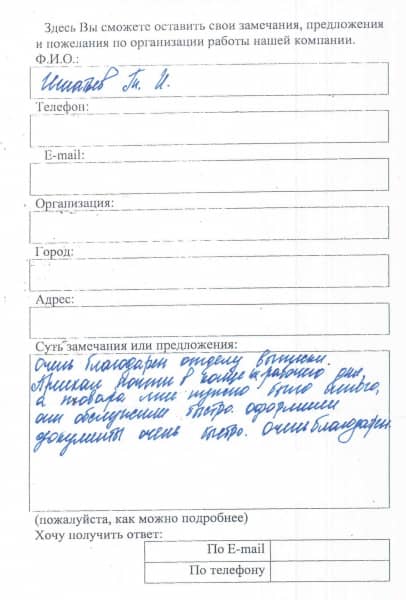 Здесь Вы сможете оставить свои замечания, предложения
и пожелания по организации работы нашей компании.
Ф.И.О.:
Игнатьев Г. И.
Телефон:
E-mail:
Организация:
Город:
Адрес:
Суть замечания или предложения:
Очень благодарен отделу выписки.
Приехал почти в конце рабочего дня,
а товара мне нужно было много,
они обслужили быстро. оформили
документы очень быстро. Очень благодарен.
(пожалуйста, как можно подробнее)
Хочу получить ответ:
По E-mail
По телефону